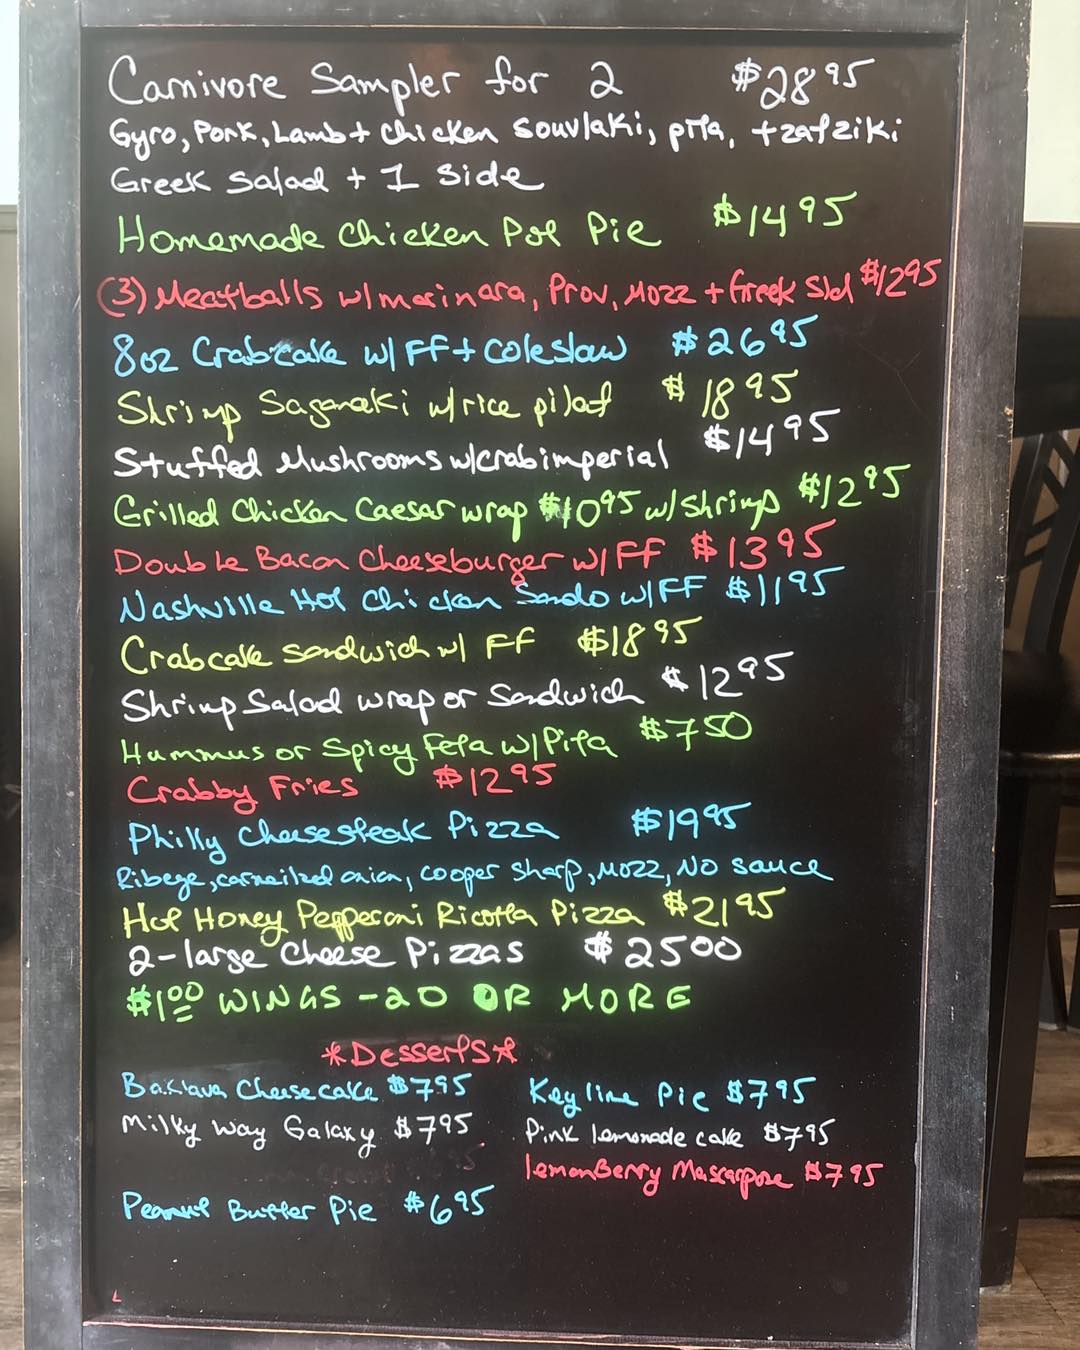 Carnivore Sampler for 2 $28.95
Gyro, Pork, Lamb + Chicken Souvlaki, pita, tzatziki
Greek Salad + 1 Side
Homemade Chicken Pot Pie $14 95
(3) Meatballs w/marinara, Prov, Mozz + Greek Sld $12 95
8oz Crabcake w/ FF + Coleslaw $26 95
Shrimp Saganaki w/rice pilaf $18 95
Stuffed Mushrooms w/crab imperial $14 95
Grilled Chicken Caesar wrap $10 95 w/ Shrimp $12 95
Double Bacon Cheeseburger w/ FF $13 95
Nashville Hot Chicken Sando w/ FF $11 95
Crabcake Sandwich w/ FF $18 95
Shrimp Salad wrap or Sandwich $12 95
Hummus or Spicy Feta w/ Pita $7 50
Crabby Fries $12 95
Philly Cheesesteak Pizza $19 95
Ribeye, , cooper sharp, Mozz, NO sauce
Hot Honey Pepperoni Ricotta Pizza $21 95
2-large Cheese Pizzas $25 00
$1 00 WINGS - 20 OR MORE
*Desserts*
Baklava Cheesecake $7 95 Key lime Pie $7 95
Milky Way Galaxy $7 95 Pink lemonade cake $7 95
lemonBerry Mascarpone $7 95
Peanut Butter Pie $6 95